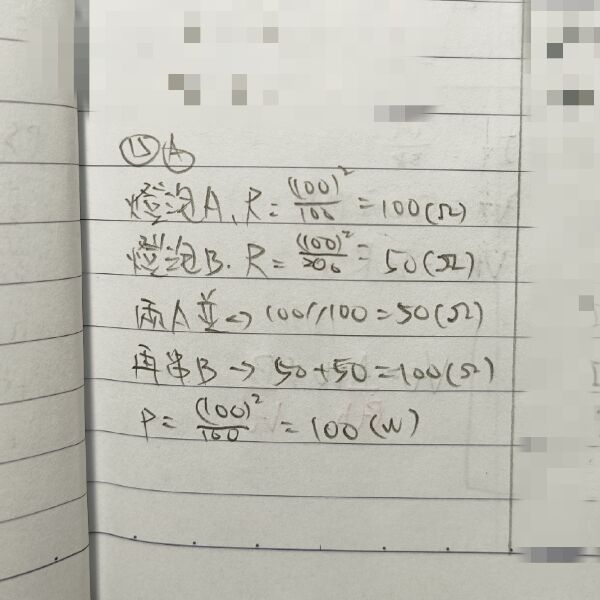 ⑮ Ⓐ
燈泡A、R=(100)²/100=100(Ω)
燈泡B. R=(100)²/200=50(Ω)
兩A並→100//100=50(Ω)
再串B→50+50=100(Ω)
P=(100)²/100=100(W)